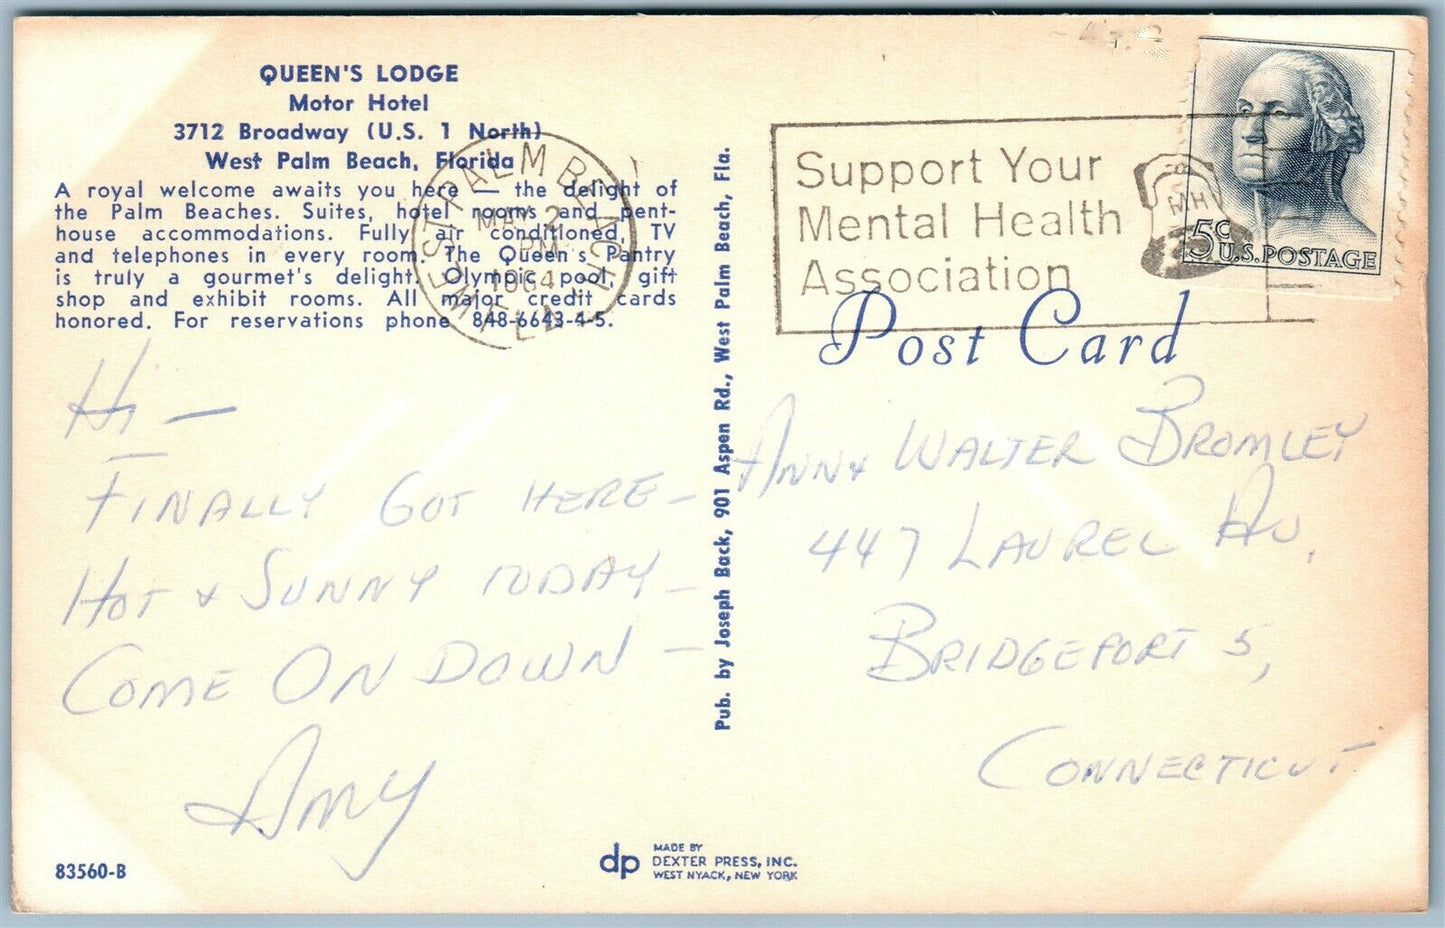 QUEEN'S LODGE
Motor Hotel
3712 Broadway (U.S. 1 North)
West Palm Beach, Florida
A royal welcome awaits you here — the delight of
the Palm Beaches. Suites, hotel rooms and pent-
house accommodations. Fully air conditioned, TV
and telephones in every room. The Queen's Pantry
is truly a gourmet's delight. Olympic pool, gift
shop and exhibit rooms. All major credit cards
honored. For reservations phone 848-6643-4-5.
WEST PALM BEACH
MAY 2
PM
1964
FLA
Support Your
Mental Health
Association
5¢ U.S. POSTAGE
Post Card
Hi —
FINALLY GOT HERE —
HOT & SUNNY TODAY —
COME ON DOWN —
AMY
Pub. by Joseph Back, 901 Aspen Rd., West Palm Beach, Fla.
ANN & WALTER BROMLEY
447 LAUREL AV.
BRIDGEPORT 5,
CONNECTICUT
83560-B
dp
MADE BY
DEXTER PRESS, INC.
WEST NYACK, NEW YORK